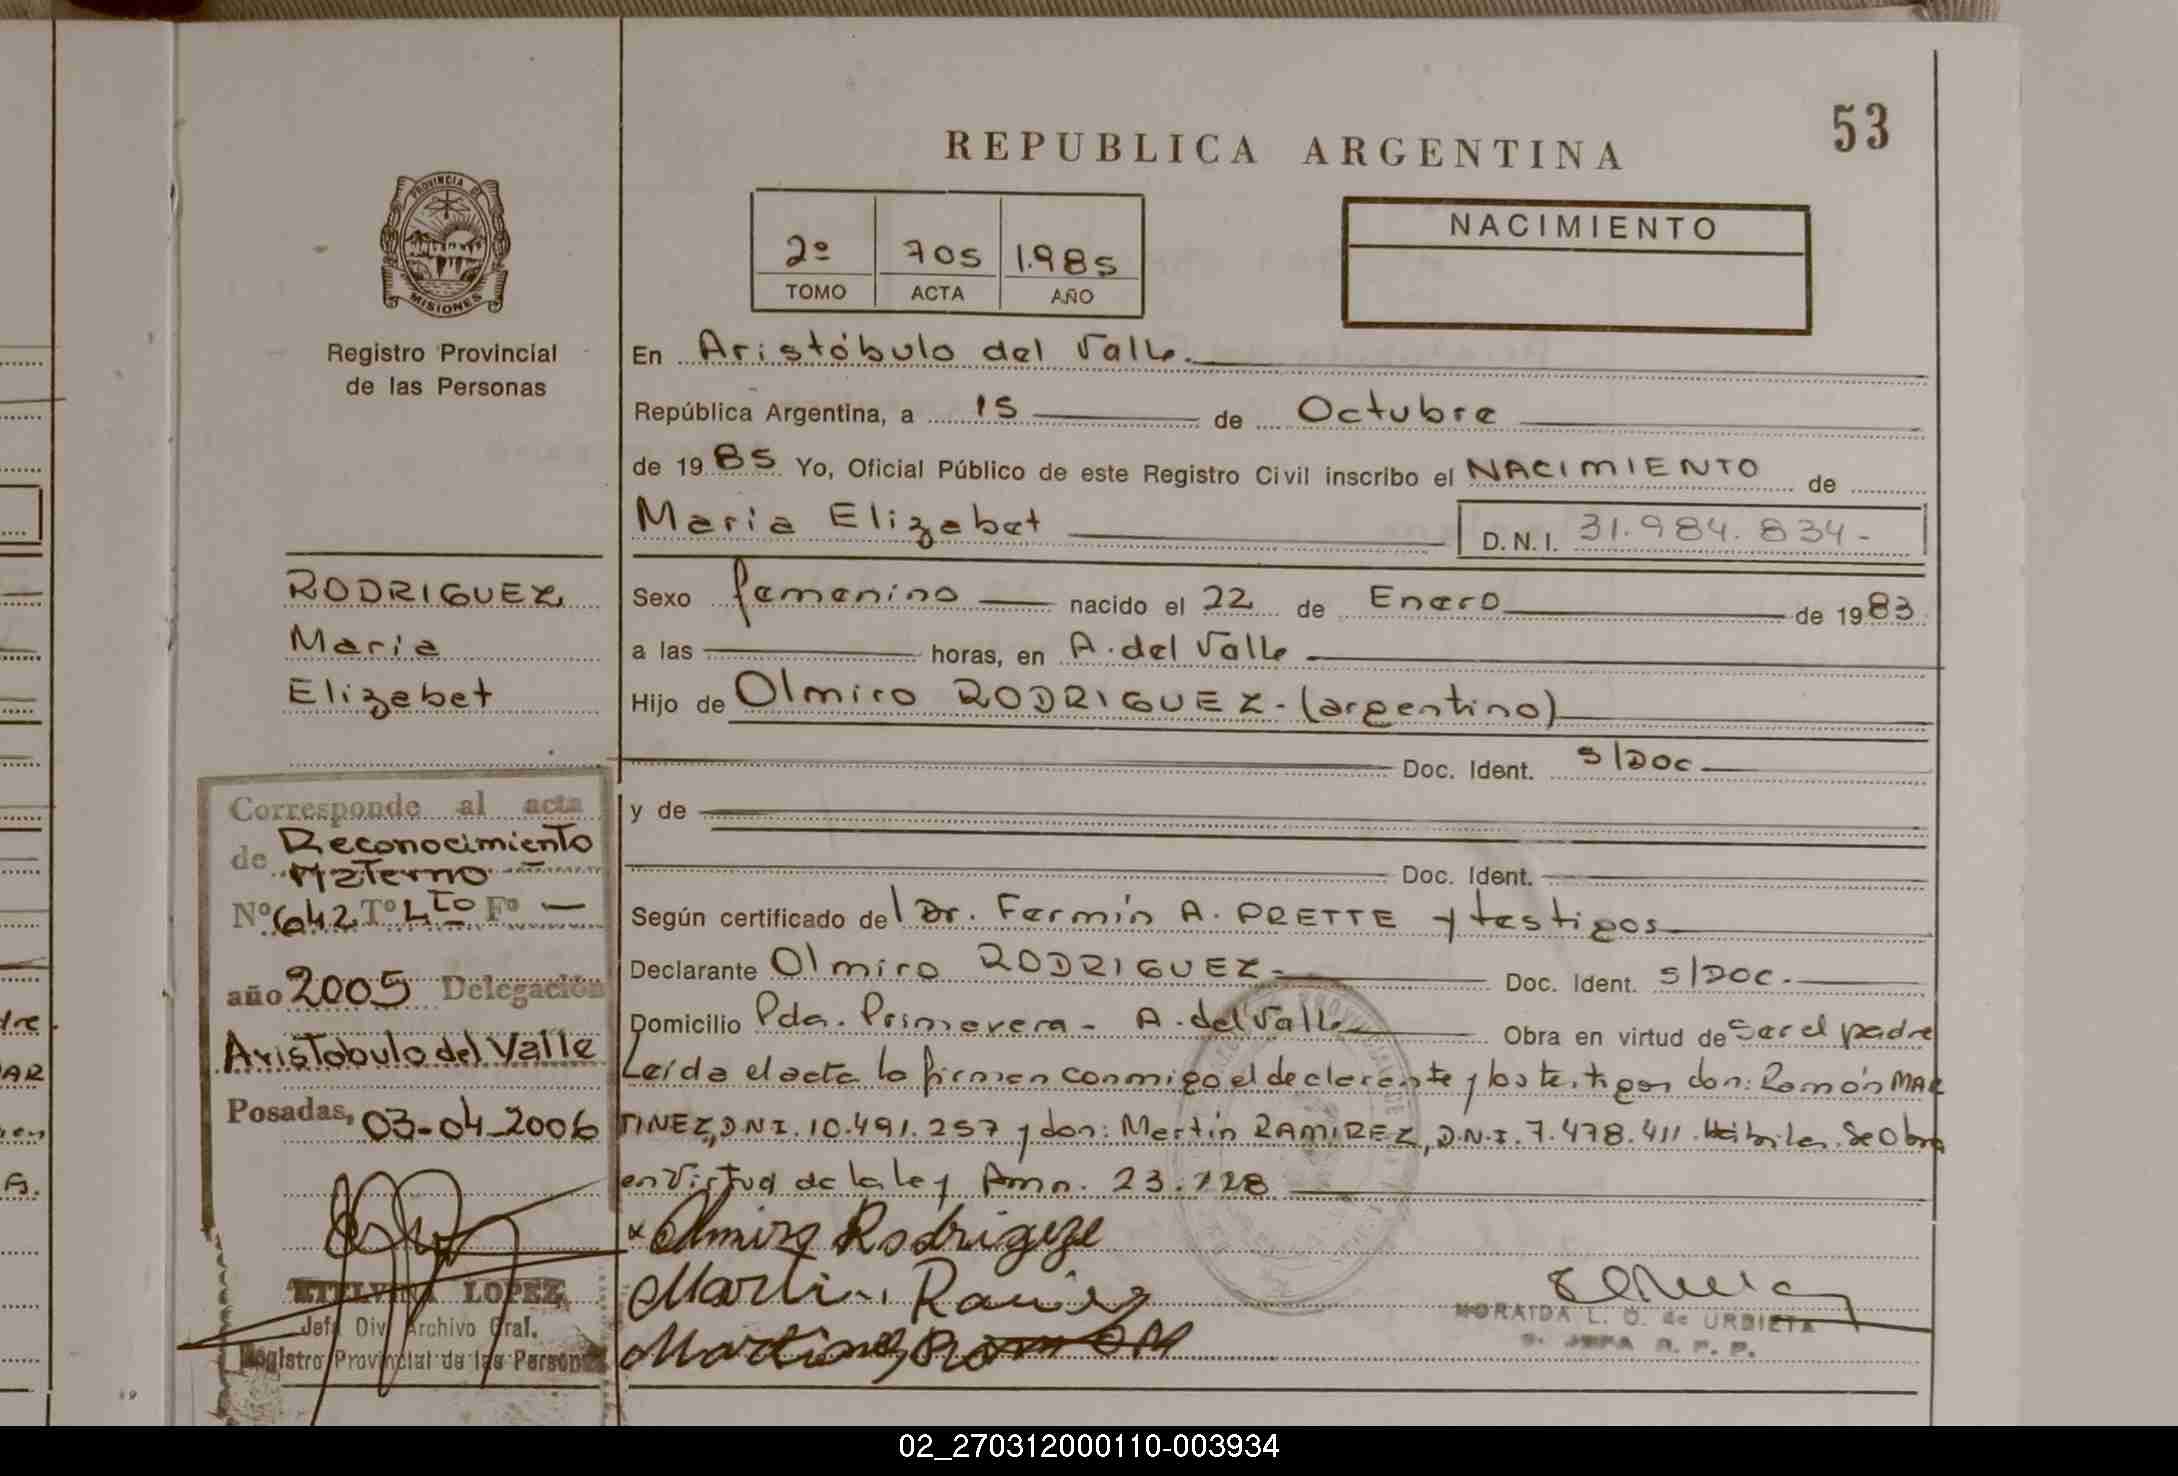 53
REPUBLICA ARGENTINA
PROVINCIA DE
MISIONES
Registro Provincial
de las Personas
2º 705 1.985
TOMO ACTA AÑO
NACIMIENTO
En Aristóbulo del Valle.
República Argentina, a 15 de Octubre
de 1985 Yo, Oficial Público de este Registro Civil inscribo el NACIMIENTO de
Maria Elizabet
D.N.I. 31.984.834-
RODRIGUEZ
Maria
Elizabet
Sexo femenino nacido el 22 de Enero de 1983
a las horas, en A. del Valle
Hijo de Olmiro RODRIGUEZ - (argentino)
Doc. Ident. S/Doc
y de
Doc. Ident.
Según certificado del Dr. Fermín A. PRETTE y testigos
Declarante Olmiro RODRIGUEZ - Doc. Ident. S/Doc.
Domicilio Pda. Primavera - A. del Valle Obra en virtud de Ser el padre
Leída el acta la firman conmigo el declarante y los testigos don: Ramón MAR
TINEZ, D.N.I. 10.491.257 y don: Martín RAMIREZ, D.N.I. 7.478.411. Hábiles. Se Obra
en Virtud de la ley Amn. 23.128
Corresponde al acta
de Reconocimiento
Materno
Nº 642 Tº 4to Fº —
año 2005 Delegación
Aristobulo del Valle
Posadas, 03-04-2006
ETELVINA LOPEZ
Jefe Div. Archivo Gral.
Registro Provincial de las Personas
x Olmiro Rodrigeze
Martin Ramirez
Martinez Ramon
MORAIDA L. O. de URBIETA
S. JEFA R. P. P.
02_270312000110-003934